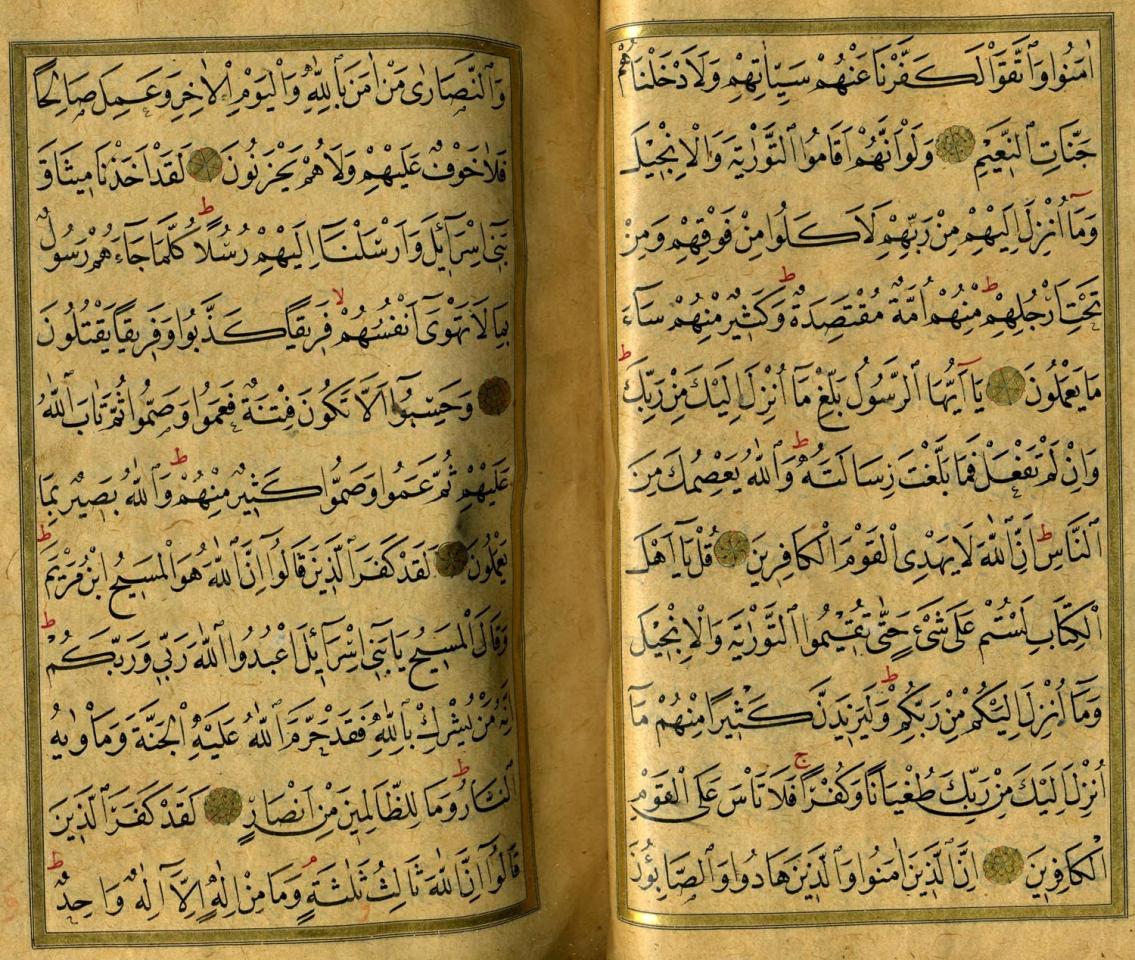 اٰمَنُوا وَاتَّقَوْا لَكَفَّرْنَا عَنْهُمْ سَيِّاٰتِهِمْ وَلَاَدْخَلْنَاهُمْ
جَنَّاتِ النَّعِيمِ وَلَوْ اَنَّهُمْ اَقَامُوا التَّوْرٰيةَ وَالْاِنْجِيلَ
وَمَٓا اُنْزِلَ اِلَيْهِمْ مِنْ رَبِّهِمْ لَاَكَلُوا مِنْ فَوْقِهِمْ وَمِنْ
تَحْتِ اَرْجُلِهِمْ ط مِنْهُمْ اُمَّةٌ مُقْتَصِدَةٌ ط وَكَثِيرٌ مِنْهُمْ سَٓاءَ
مَا يَعْمَلُونَ يَٓا اَيُّهَا الرَّسُولُ بَلِّغْ مَٓا اُنْزِلَ اِلَيْكَ مِنْ رَبِّكَ ط
وَاِنْ لَمْ تَفْعَلْ فَمَا بَلَّغْتَ رِسَالَتَهُ ط وَاللّٰهُ يَعْصِمُكَ مِنَ
النَّاسِ ط اِنَّ اللّٰهَ لَا يَهْدِى الْقَوْمَ الْكَافِرِينَ قُلْ يَٓا اَهْلَ
الْكِتَابِ لَسْتُمْ عَلٰى شَىْءٍ حَتّٰى تُقِيمُوا التَّوْرٰيةَ وَالْاِنْجِيلَ
وَمَٓا اُنْزِلَ اِلَيْكُمْ مِنْ رَبِّكُمْ ط وَلَيَزِيدَنَّ كَثِيرًا مِنْهُمْ مَٓا
اُنْزِلَ اِلَيْكَ مِنْ رَبِّكَ طُغْيَانًا وَكُفْرًا ج فَلَا تَاْسَ عَلَى الْقَوْمِ
الْكَافِرِينَ اِنَّ الَّذِينَ اٰمَنُوا وَالَّذِينَ هَادُوا وَالصَّابِؤُنَ
وَالنَّصَارٰى مَنْ اٰمَنَ بِاللّٰهِ وَالْيَوْمِ الْاٰخِرِ وَعَمِلَ صَالِحًا
فَلَا خَوْفٌ عَلَيْهِمْ وَلَا هُمْ يَحْزَنُونَ لَقَدْ اَخَذْنَا مِيثَاقَ
بَنِٓى اِسْرَٓائِلَ وَاَرْسَلْنَٓا اِلَيْهِمْ رُسُلًا ط كُلَّمَا جَٓاءَهُمْ رَسُولٌ
بِمَا لَا تَهْوٰٓى اَنْفُسُهُمْ لا فَرِيقًا كَذَّبُوا وَفَرِيقًا يَقْتُلُونَ
وَحَسِبُٓوا اَلَّا تَكُونَ فِتْنَةٌ فَعَمُوا وَصَمُّوا ثُمَّ تَابَ اللّٰهُ
عَلَيْهِمْ ثُمَّ عَمُوا وَصَمُّوا كَثِيرٌ مِنْهُمْ ط وَاللّٰهُ بَصِيرٌ بِمَا
يَعْمَلُونَ لَقَدْ كَفَرَ الَّذِينَ قَالُٓوا اِنَّ اللّٰهَ هُوَ الْمَسِيحُ ابْنُ مَرْيَمَ ط
وَقَالَ الْمَسِيحُ يَا بَنِٓى اِسْرَٓائِلَ اعْبُدُوا اللّٰهَ رَبِّى وَرَبَّكُمْ ط
اِنَّهُ مَنْ يُشْرِكْ بِاللّٰهِ فَقَدْ حَرَّمَ اللّٰهُ عَلَيْهِ الْجَنَّةَ وَمَاْوٰيهُ
النَّارُ ط وَمَا لِلظَّالِمِينَ مِنْ اَنْصَارٍ لَقَدْ كَفَرَ الَّذِينَ
قَالُٓوا اِنَّ اللّٰهَ ثَالِثُ ثَلٰثَةٍ م وَمَا مِنْ اِلٰهٍ اِلَّٓا اِلٰهٌ وَاحِدٌ ط